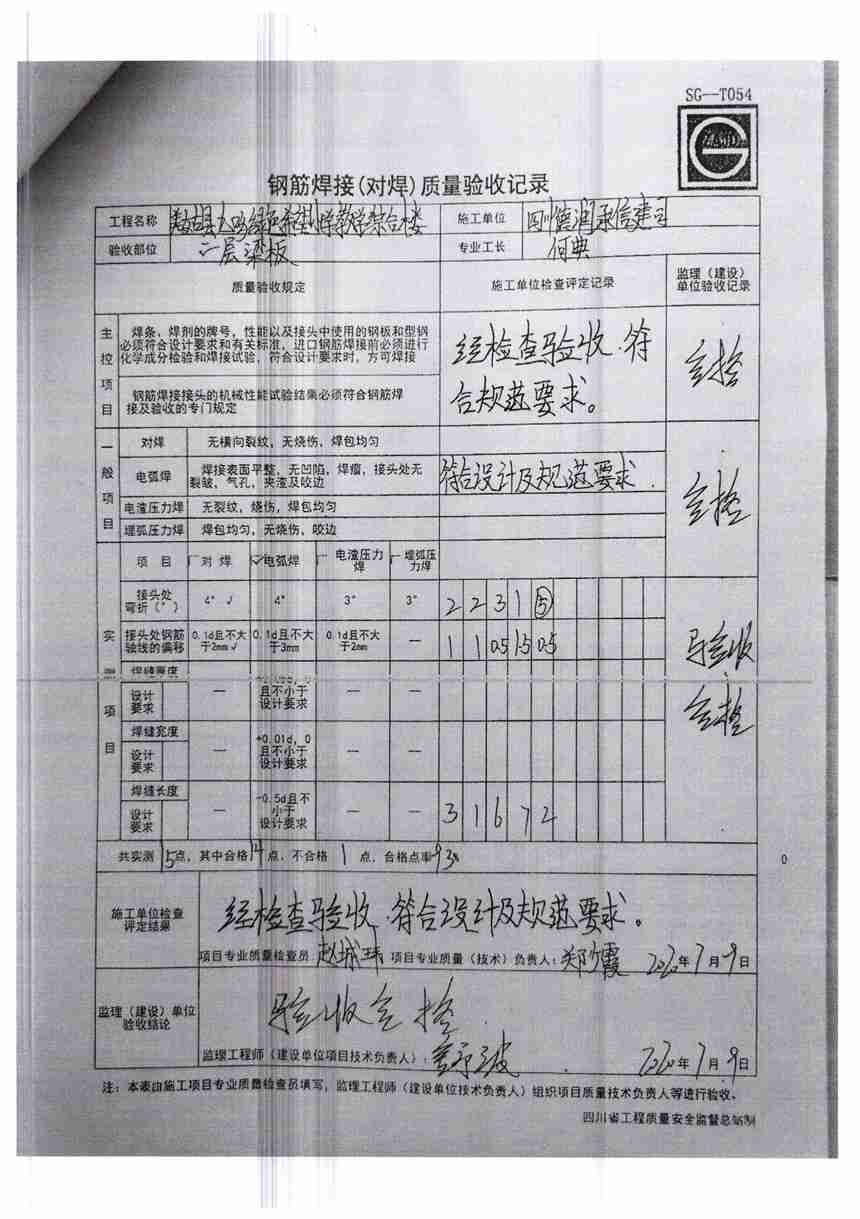 SG—T054
钢筋焊接(对焊)质量验收记录
工程名称 施工单位 四川德润承信建司
验收部位 二层梁板 专业工长 何典
质量验收规定 施工单位检查评定记录 监理（建设）单位验收记录
主控项目
焊条、焊剂的牌号，性能以及接头中使用的钢板和型钢
必须符合设计要求和有关标准，进口钢筋焊接前必须进行
化学成分检验和焊接试验，符合设计要求时，方可焊接
钢筋焊接接头的机械性能试验结果必须符合钢筋焊
接及验收的专门规定
经检查验收，符
合规范要求。
合格
一般项目
对焊 无横向裂纹，无烧伤，焊包均匀
电弧焊 焊接表面平整，无凹陷，焊瘤，接头处无
裂皱，气孔，夹渣及咬边
符合设计及规范要求.
合格
电渣压力焊 无裂纹，烧伤，焊包均匀
埋弧压力焊 焊包均匀，无烧伤，咬边
实
项目
项 目 对 焊 ✓电弧焊 电渣压力焊 埋弧压力焊
接头处弯折（°） 4° √ 4° 3° 3° 2 2 3 1 ⑤
接头处钢筋轴线的偏移 0.1d且不大于2mm√ 0.1d且不大于3mm 0.1d且不大于2mm — 1 1 0.5 1.5 0.5
验收
合格
设计要求 — 且不小于设计要求 — —
焊缝宽度
设计要求 — +0.01d，0且不小于设计要求 — —
焊缝长度
设计要求 — -0.5d且不小于设计要求 — — 3 1 6 7 2
共实测15点，其中合格14点，不合格 1 点，合格点率93%
0
施工单位检查评定结果
经检查验收，符合设计及规范要求。
项目专业质量检查员 项目专业质量（技术）负责人：郑霞 2020年7月9日
监理（建设）单位验收结论
验收合格.
监理工程师（建设单位项目技术负责人）： 2020年7月9日
注：本表由施工项目专业质量检查员填写，监理工程师（建设单位技术负责人）组织项目质量技术负责人等进行验收。
四川省工程质量安全监督总站制